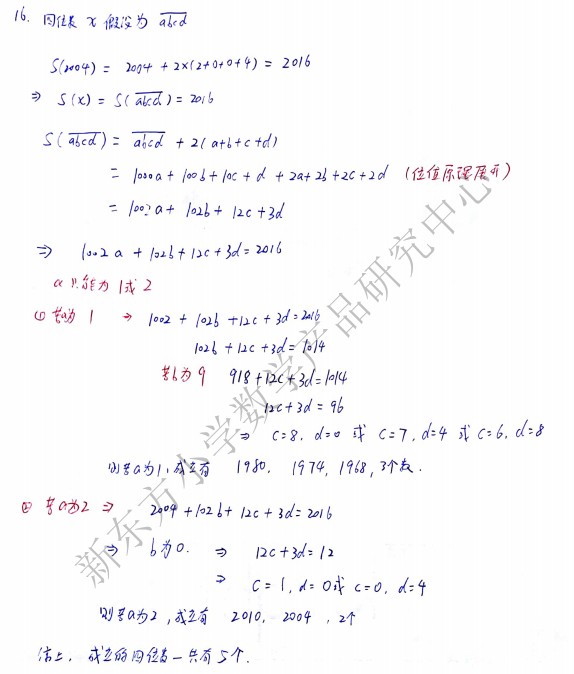 16. 四位数 x 假设为 abcd
S(2004) = 2004 + 2×(2+0+0+4) = 2016
⇒ S(x) = S(abcd) = 2016
S(abcd) = abcd + 2(a+b+c+d)
= 1000a + 100b + 10c + d + 2a + 2b + 2c + 2d (位值原理展开)
= 1002a + 102b + 12c + 3d
⇒ 1002a + 102b + 12c + 3d = 2016
a只能为1或2
① 若a为1 ⇒ 1002 + 102b + 12c + 3d = 2016
102b + 12c + 3d = 1014
若b为9 918 + 12c + 3d = 1014
12c + 3d = 96
⇒ c=8, d=0 或 c=7, d=4 或 c=6, d=8
则若a为1, 成立有 1980, 1974, 1968, 3个数.
② 若a为2 ⇒ 2004 + 102b + 12c + 3d = 2016
⇒ b为0. ⇒ 12c + 3d = 12
⇒ c=1, d=0 或 c=0, d=4
则若a为2, 成立有 2010, 2004, 2个
综上, 成立的四位数一共有5个.
新东方小学数学产品研究中心